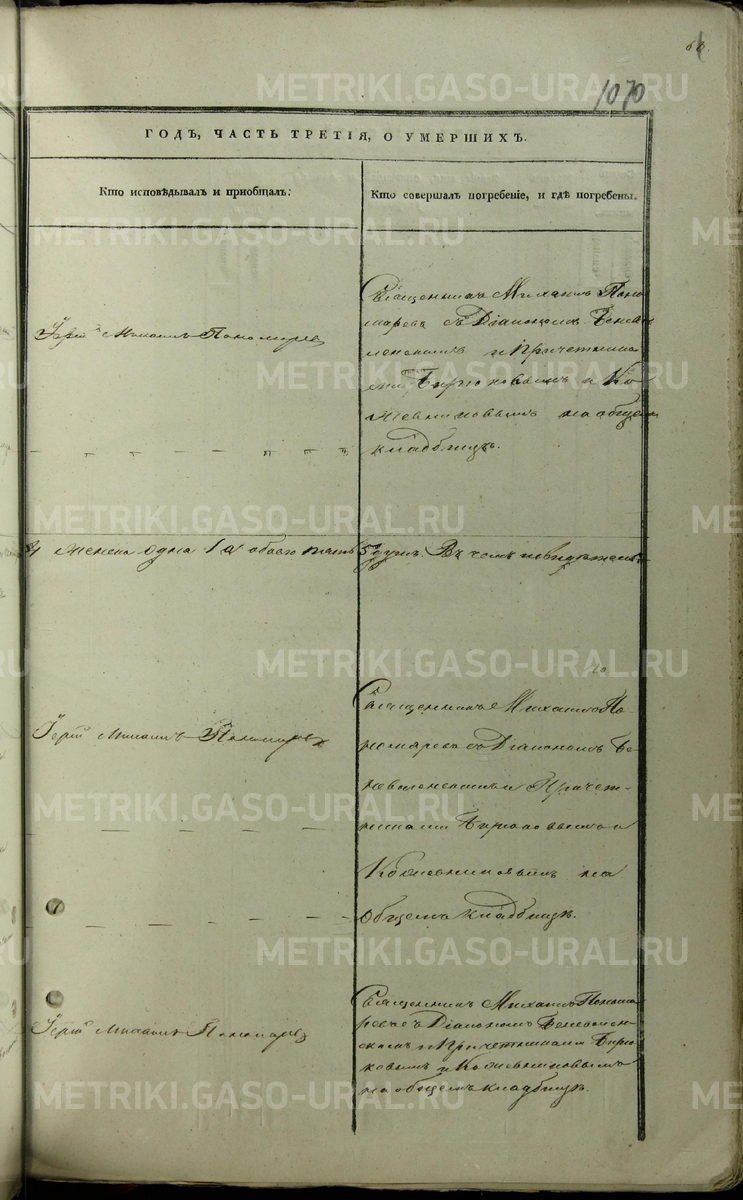 1070
ГОДЪ, ЧАСТЬ ТРЕТІЯ, О УМЕРШИХЪ.
Кто исповѣдывалъ и пріобщалъ:
Кто совершалъ погребеніе, и гдѣ погребены.
Іерей Михаилъ Пономаревъ
Священникъ Михаилъ Поно
маревъ съ Діакономъ
и Причетника
ми Бирюковымъ и Ко
жевниковымъ на общемъ
кладбищѣ.
женска одна 1 а обоего
5 душъ. Въ чемъ
Іерей Михаилъ Пономаревъ
Священникъ Михаилъ По
номаревъ съ Діакономъ
и Причет-
никами Бирюковымъ и
Кожевниковымъ на
общемъ кладбищѣ.
Іерей Михаилъ Пономаревъ
Священникъ Михаилъ Понома
ревъ съ Діакономъ
и Причетниками Бирю
ковымъ и Кожевниковымъ
на общемъ кладбищѣ.
METRIKI.GASO-URAL.RU